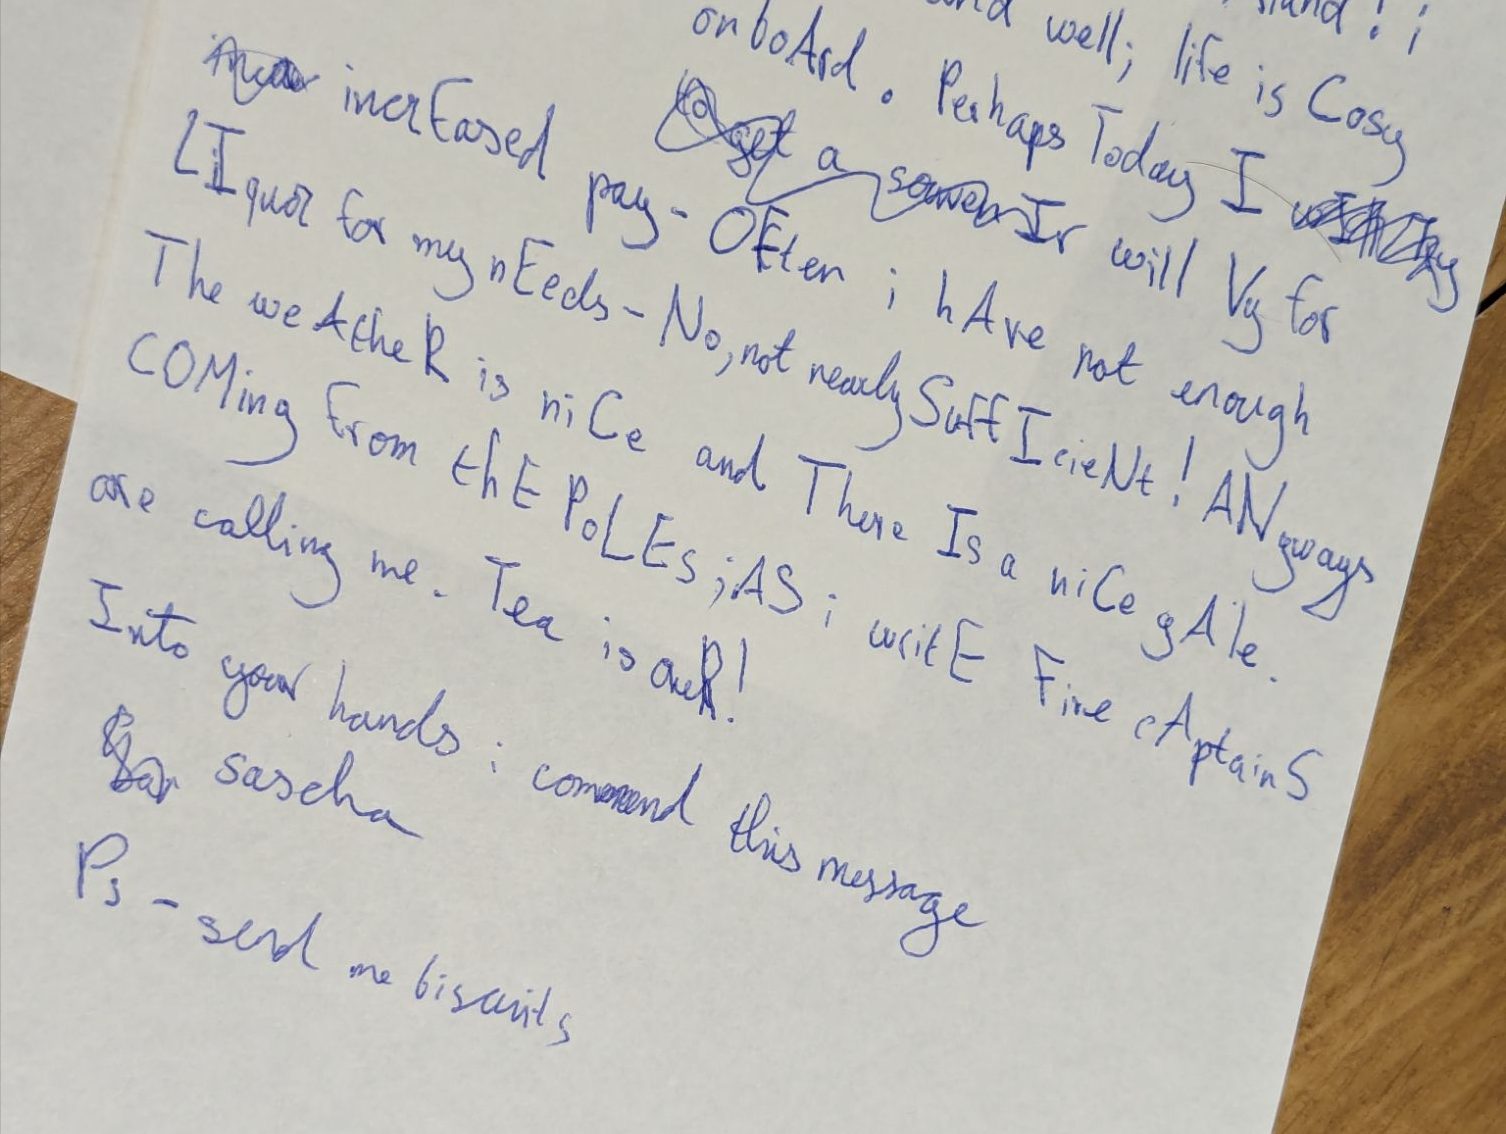 stand! i
and well; life is Cosy
onboArd. Perhaps Today I
to get a souvenIr will Vy for
incrEased pay - OFten i hAve not enough
LIquor for my nEeds - No, not nearly SuffIcieNt! ANyways
The weAtheR is niCe and There Is a niCe gAle.
COMing from thE POLEs; AS i writE Fine cAptainS
are calling me. Tea is oveR!
Into your hands i commend this message
sascha
Ps - send me biscuits